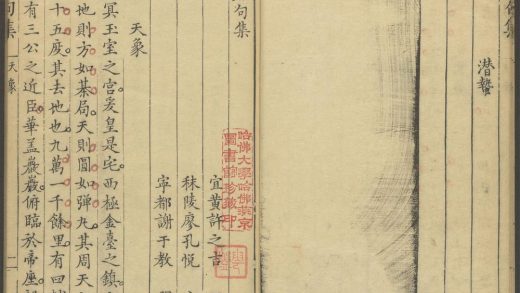 句集
潜蟄
句集
宜黄許之吉
秣陵廖孔悦
寧都謝于教
哈佛大學哈佛燕京
圖書館珍藏印
天象
冥玉室之宫爰皇是宅西極金臺之鎮
地則方如棊局天則圓如弹丸其周天
十五度其去地也九萬一千餘里有曰
有三公之近臣華盖嚴嚴俯臨於帝座
句集
天象
一